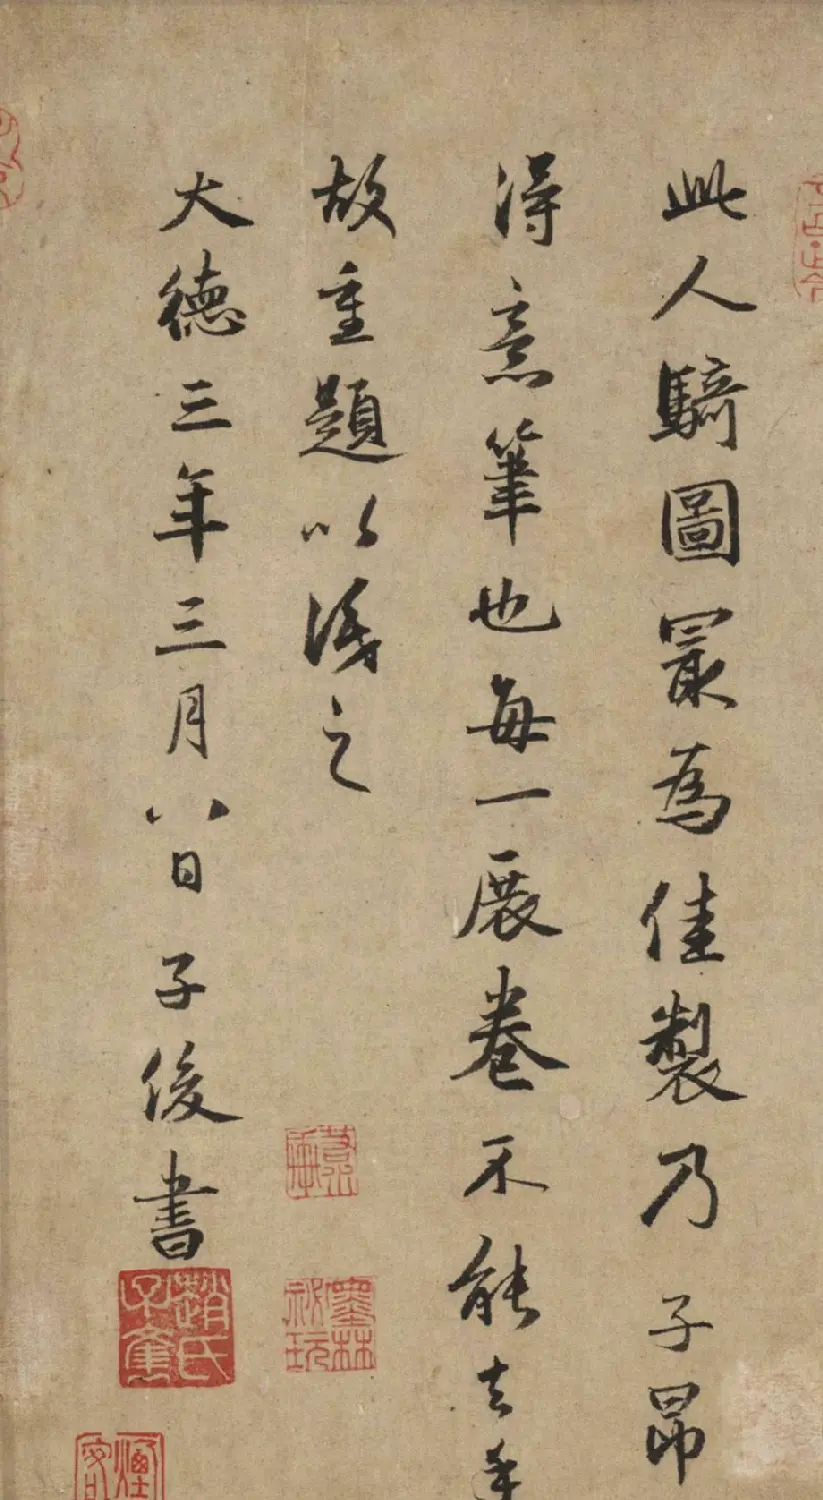 此人騎圖最為佳製乃子昂
得意筆也每一展卷不能去手
故重題以識之
大德三年三月八日子俊書
趙氏子俊
墨林祕玩